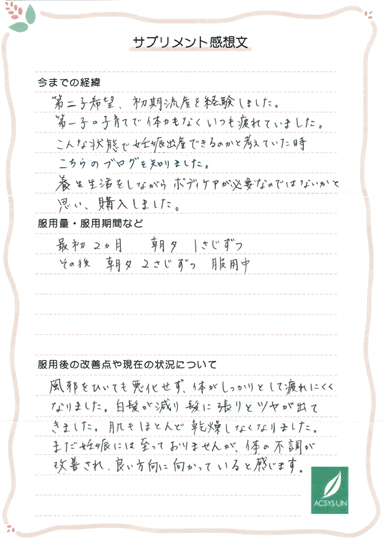 サプリメント感想文
今までの経緯
第二子希望、初期流産を経験しました。
第一子の子育てで体力もなくいつも疲れていました。
こんな状態で妊娠出産できるのかと考えていた時
こちらのブログを知りました。
養生生活をしながらボディケアが必要なのではないかと
思い、購入しました。
服用量・服用期間など
最初 2ヵ月 朝夕 1さじずつ
その後 朝夕 2さじずつ 服用中
服用後の改善点や現在の状況について
風邪をひいても悪化せず、体がしっかりとして疲れにくく
なりました。白髪が減り髪に張りとツヤが出て
きました。肌もほとんど乾燥しなくなりました。
まだ妊娠には至っておりませんが、体の不調が
改善され、良い方向に向かっていると感じます。
ACSYSUN